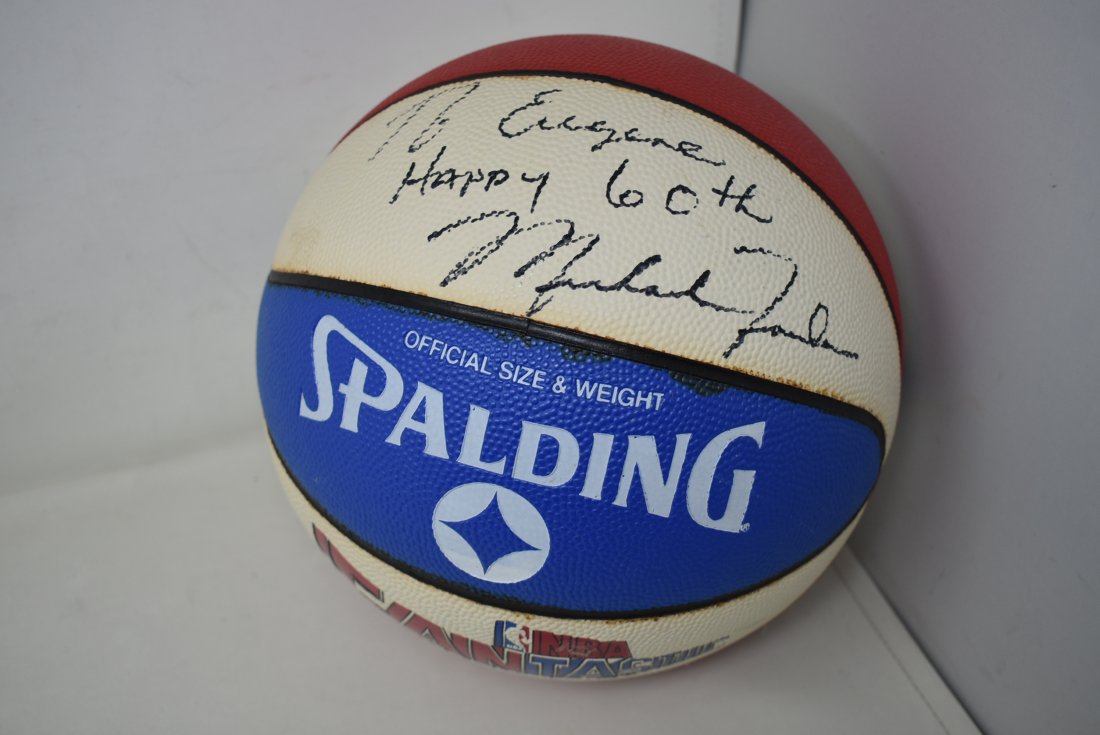 To Eugene
Happy 60th
Michael Jordan
OFFICIAL SIZE & WEIGHT
SPALDING
NBA
FANTASTIC